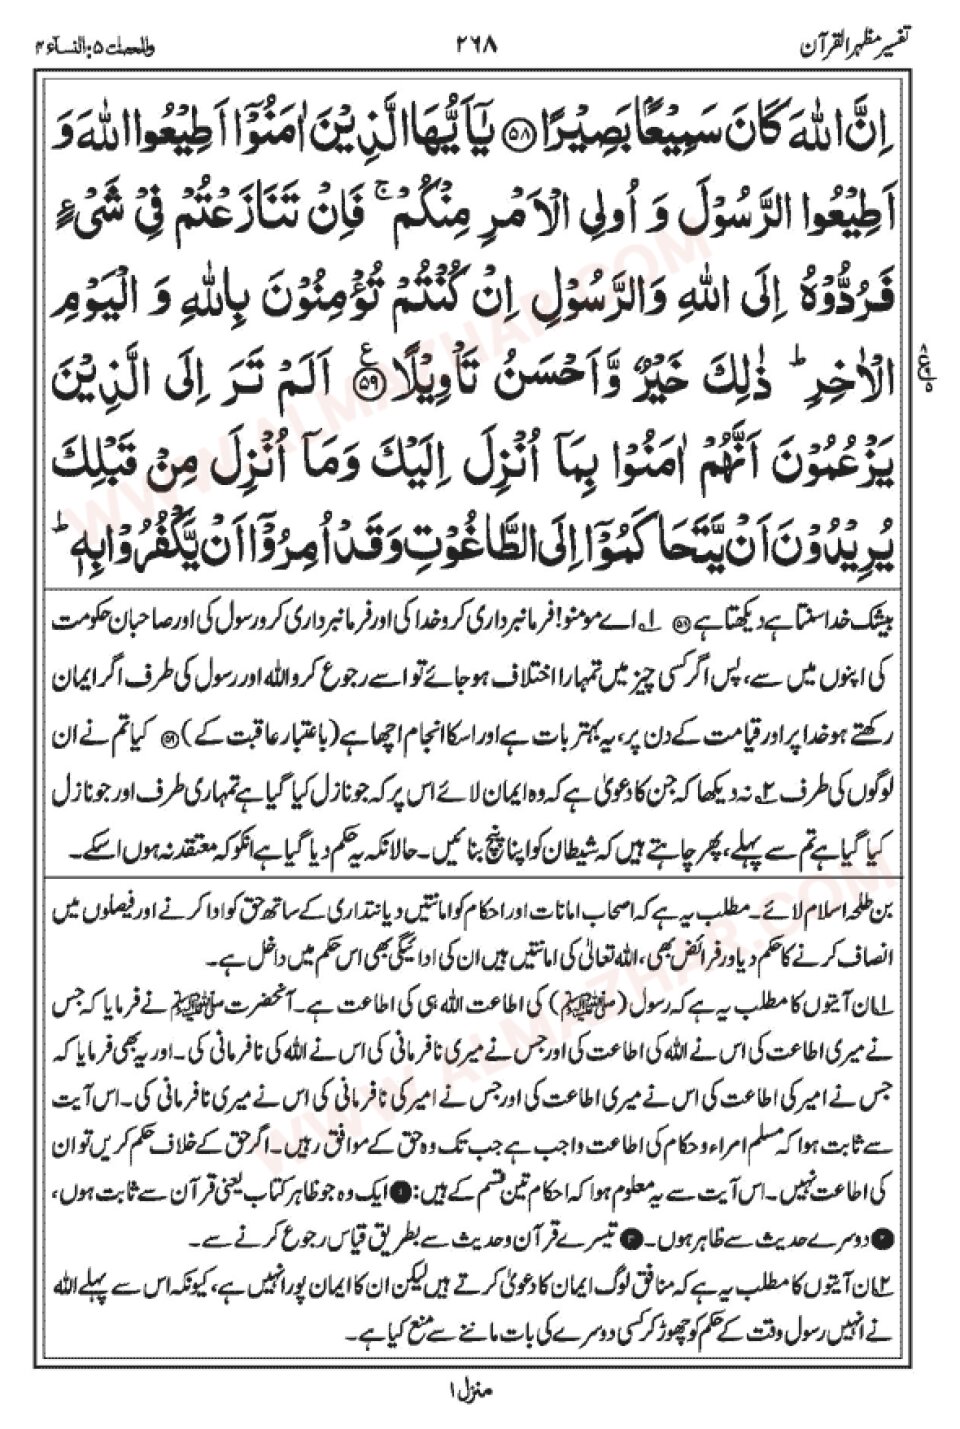 تفسیر مظہر القرآن ۲۶۸ والمحصنٰت ۵: النسآء ۴
اِنَّ اللّٰهَ كَانَ سَمِیْعًۢا بَصِیْرًا ﴿۵۸﴾ یٰۤاَیُّهَا الَّذِیْنَ اٰمَنُوْۤا اَطِیْعُوا اللّٰهَ وَ
اَطِیْعُوا الرَّسُوْلَ وَ اُولِی الْاَمْرِ مِنْكُمْ ۚ فَاِنْ تَنَازَعْتُمْ فِیْ شَیْءٍ
فَرُدُّوْهُ اِلَی اللّٰهِ وَالرَّسُوْلِ اِنْ كُنْتُمْ تُؤْمِنُوْنَ بِاللّٰهِ وَ الْیَوْمِ
الْاٰخِرِ ؕ ذٰلِكَ خَیْرٌ وَّاَحْسَنُ تَاْوِیْلًا ﴿۵۹﴾ ع اَلَمْ تَرَ اِلَی الَّذِیْنَ
یَزْعُمُوْنَ اَنَّهُمْ اٰمَنُوْا بِمَاۤ اُنْزِلَ اِلَیْكَ وَمَاۤ اُنْزِلَ مِنْ قَبْلِكَ
یُرِیْدُوْنَ اَنْ یَّتَحَاكَمُوْۤا اِلَی الطَّاغُوْتِ وَقَدْ اُمِرُوْۤا اَنْ یَّكْفُرُوْا بِهٖ ؕ
بیشک خدا سنتا ہے دیکھتا ہے ﴿۵۸﴾ ۱؎ اے مومنو! فرمانبرداری کرو خدا کی اور فرمانبرداری کرو رسول کی اور صاحبان حکومت
کی اپنوں میں سے، پس اگر کسی چیز میں تمہارا اختلاف ہو جائے تو اسے رجوع کرو اللہ اور رسول کی طرف اگر ایمان
رکھتے ہو خدا پر اور قیامت کے دن پر، یہ بہتر بات ہے اور اسکا انجام اچھا ہے (باعتبار عاقبت کے) ﴿۵۹﴾ کیا تم نے ان
لوگوں کی طرف ۲؎ نہ دیکھا کہ جن کا دعویٰ ہے کہ وہ ایمان لائے اس پر کہ جو نازل کیا گیا ہے تمہاری طرف اور جو نازل
کیا گیا ہے تم سے پہلے، پھر چاہتے ہیں کہ شیطان کو اپنا پنچ بنائیں۔ حالانکہ یہ حکم دیا گیا ہے انکو کہ معتقد نہ ہوں اسکے۔
بن طلحہ اسلام لائے۔ مطلب یہ ہے کہ اصحاب امانات اور احکام کو امانتیں دیانتداری کے ساتھ حق کو ادا کرنے اور فیصلوں میں
انصاف کرنے کا حکم دیا ور فرائض بھی، اللہ تعالیٰ کی امانتیں ہیں ان کی ادائیگی بھی اس حکم میں داخل ہے۔
۱؎ ان آیتوں کا مطلب یہ ہے کہ رسول (ﷺ) کی اطاعت اللہ ہی کی اطاعت ہے۔ آنحضرت ﷺ نے فرمایا کہ جس
نے میری اطاعت کی اس نے اللہ کی اطاعت کی اور جس نے میری نافرمانی کی اس نے اللہ کی نافرمانی کی۔ اور یہ بھی فرمایا کہ
جس نے امیر کی اطاعت کی اس نے میری اطاعت کی اور جس نے امیر کی نافرمانی کی اس نے میری نافرمانی کی۔ اس آیت
سے ثابت ہوا کہ مسلم امراء و حکام کی اطاعت واجب ہے جب تک وہ حق کے موافق رہیں۔ اگر حق کے خلاف حکم کریں تو ان
کی اطاعت نہیں۔ اس آیت سے یہ معلوم ہوا کہ احکام تین قسم کے ہیں: ۱ ایک وہ جو ظاہر کتاب یعنی قرآن سے ثابت ہوں،
۲ دوسرے حدیث سے ظاہر ہوں۔ ۳ تیسرے قرآن و حدیث سے بطریق قیاس رجوع کرنے سے۔
۲؎ ان آیتوں کا مطلب یہ ہے کہ منافق لوگ ایمان کا دعویٰ کرتے ہیں لیکن ان کا ایمان پورا نہیں ہے، کیونکہ اس سے پہلے اللہ
نے انہیں رسول وقت کے حکم کو چھوڑ کر کسی دوسرے کی بات ماننے سے منع کیا ہے۔
منزل ۱
WWW.ALMAZHAR.COM
WWW.ALMAZHAR.COM